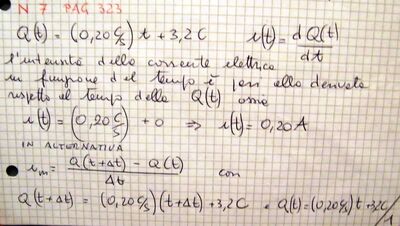 N 7 PAG 323
Q(t) = (0,20 C/s) t + 3,2 C    i(t) = dQ(t)/dt
l'intensità della corrente elettrica
in funzione del tempo è pari alla derivata
rispetto al tempo della Q(t) ossia
i(t) = (0,20 C/s) + 0 ⇒ i(t) = 0,20 A
IN ALTERNATIVA
i_m = (Q(t+Δt) - Q(t))/Δt con
Q(t+Δt) = (0,20 C/s)(t+Δt) + 3,2 C e Q(t) = (0,20 C/s) t + 3,2 C/1